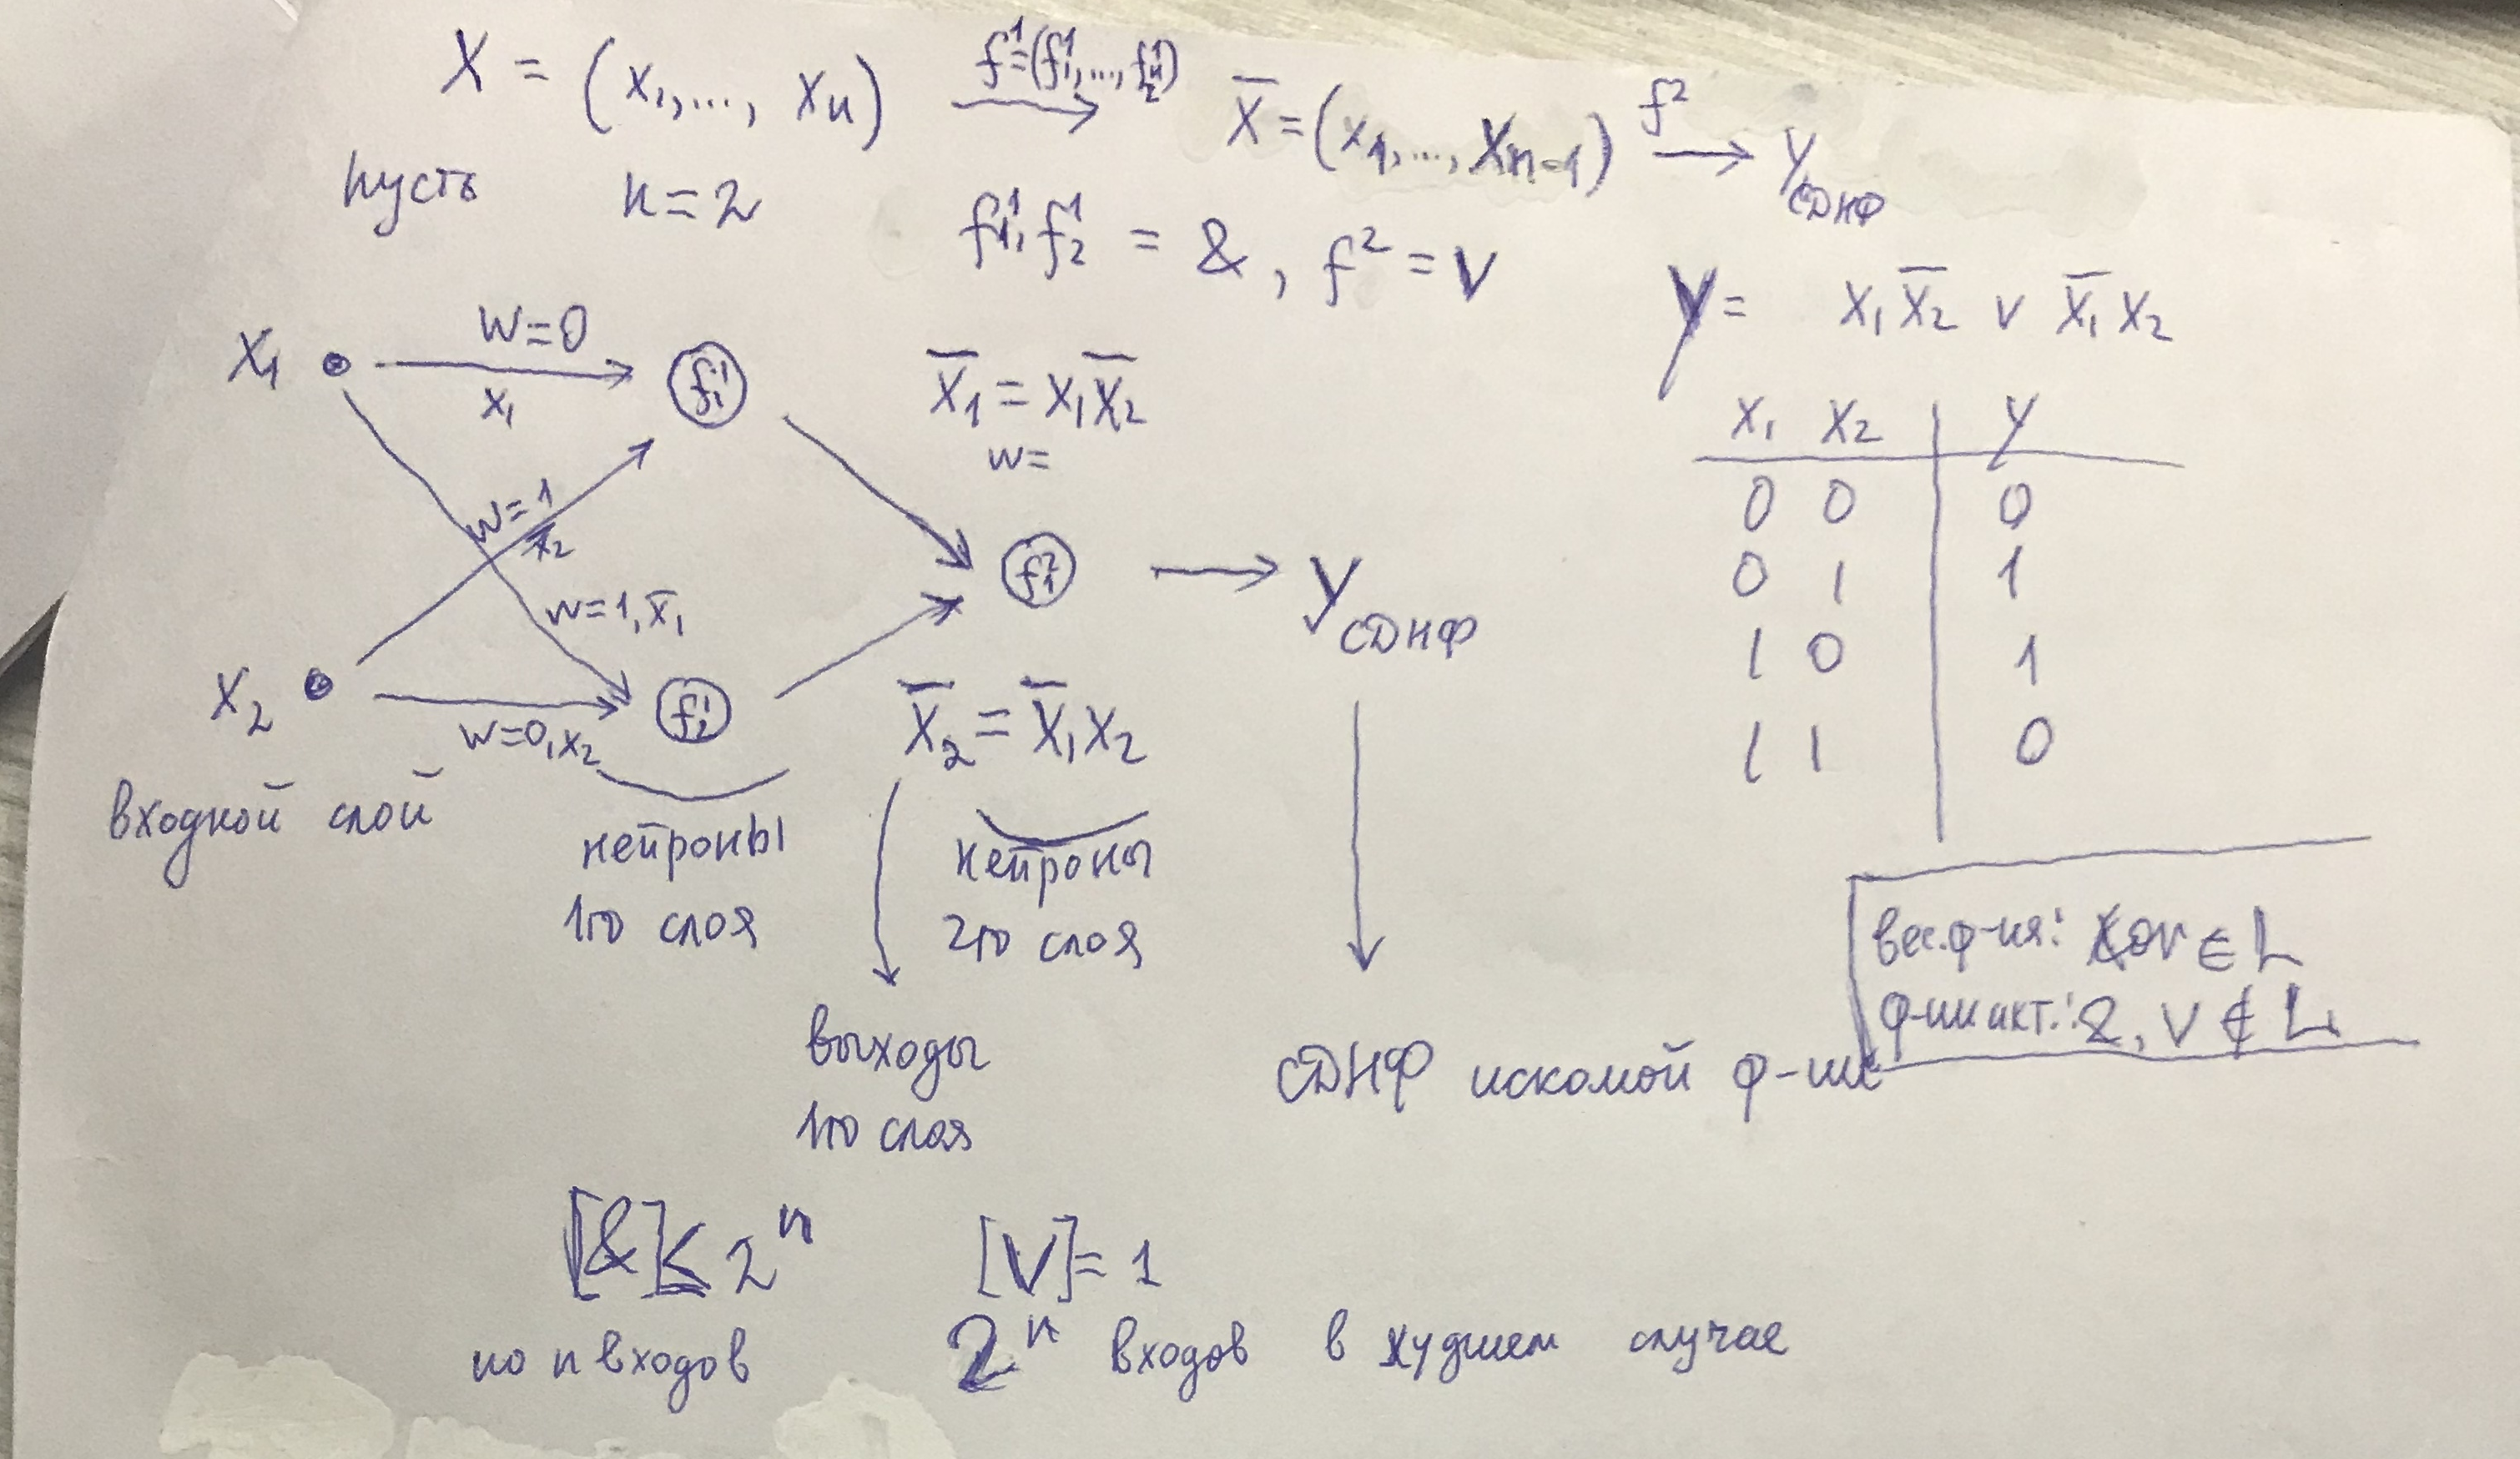 X = (x₁,..., xₙ) f¹=(f₁¹,..., f¹) → X̅ = (x₁,..., Xₙ₋₁) f² → y СДНФ
пусть n = 2
f₁¹, f₂¹ = &, f² = V
y = x₁x̅₂ v x̅₁x₂
x₁ w=0 x₁ f₁¹ X̅₁ = x₁x̅₂
w=
w=1 x̅₂
w=1, x̅₁
f₁² → y СДНФ
x₂ w=0, x₂ f₂¹ X̅₂ = x̅₁x₂
x₁ x₂ y
0 0 0
0 1 1
1 0 1
1 1 0
входной слой
нейроны
1го слоя
нейроны
2го слоя
выходы
1го слоя
СДНФ искомой ф-ии
вес.ф-ия: xor ∈ L
ф-ии акт.: &, V ∉ L
[&] ≤ 2ⁿ [V] = 1
по n входов 2ⁿ входов в худшем случае